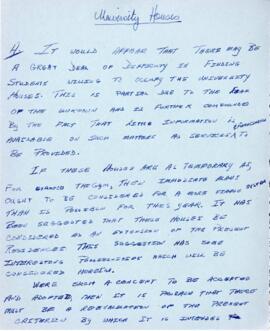 University Houses
4/ It would appear that there may be
a great deal of difficulty in finding
students willing to occupy the university
houses. This is partial due to the fear
of the unknown and is further compounded
by the fact that little information is
available on such matters as services to
be provided.
If these houses are as temporary as
for, then immediate plans
ought to be considered for a more viable
than is possible for this year. It has
been suggested that these houses be
considered as an extension of the present
residences. This suggestion has some
interesting possibilities which will be
considered herein.
Were such a concept to be accepted
and adopted, then it is that there
must be a reevaluation of the present
criterion by which it is intended